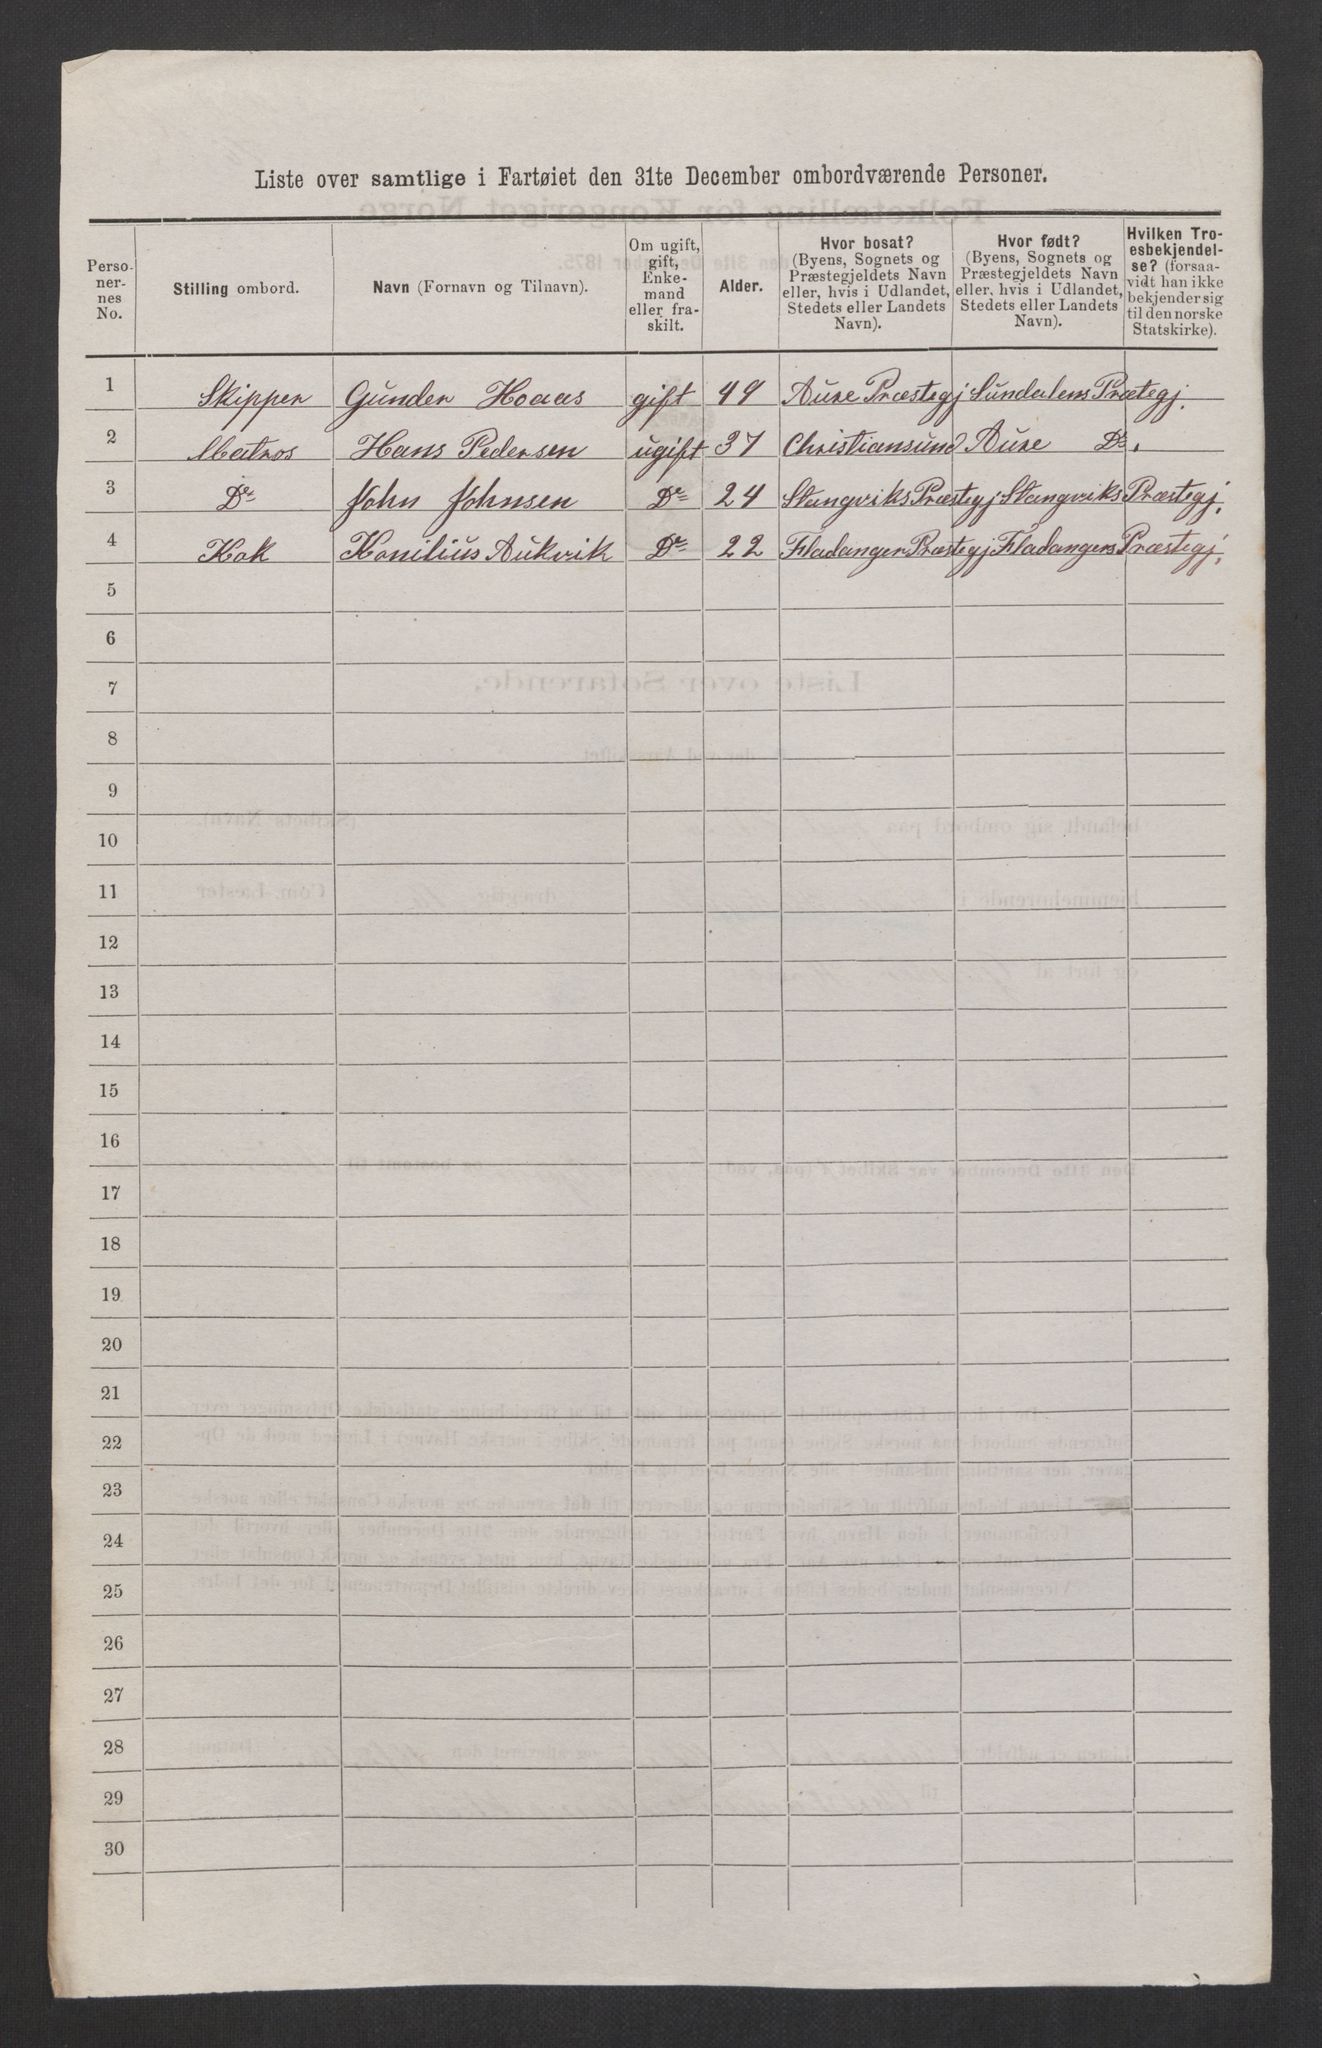 Liste over samtlige i Fartøiet den 31te December ombordværende Personer.
Perso-
ner-
nes
No.
Stilling ombord.
Navn (Fornavn og Tilnavn).
Om ugift,
gift,
Enke-
mand
eller fra-
skilt.
Alder.
Hvor bosat?
(Byens, Sognets og
Præstegjeldets Navn
eller, hvis i Udlandet,
Stedets eller Landets
Navn).
Hvor født?
(Byens, Sognets og
Præstegjeldets Navn
eller, hvis i Udlandet,
Stedets eller Landets
Navn).
Hvilken Tro-
esbekjendel-
se? (forsaa-
vidt han ikke
bekjender sig
til den norske
Statskirke).
1 Skipper Gunder Hoaas gift 49 Aure Præstegj Sundalens Prætegj.
2 Matros Hans Pedersen ugift 37 Christiansund Aure Do.
3 Do John Johnsen Do 24 Stangviks Præstegj Stangviks Præstegj.
4 Kok Konilius Aukvik Do 22 Fladanger Præstegj Fladangers Præstegj.
5
6
7
8
9
10
11
12
13
14
15
16
17
18
19
20
21
22
23
24
25
26
27
28
29
30